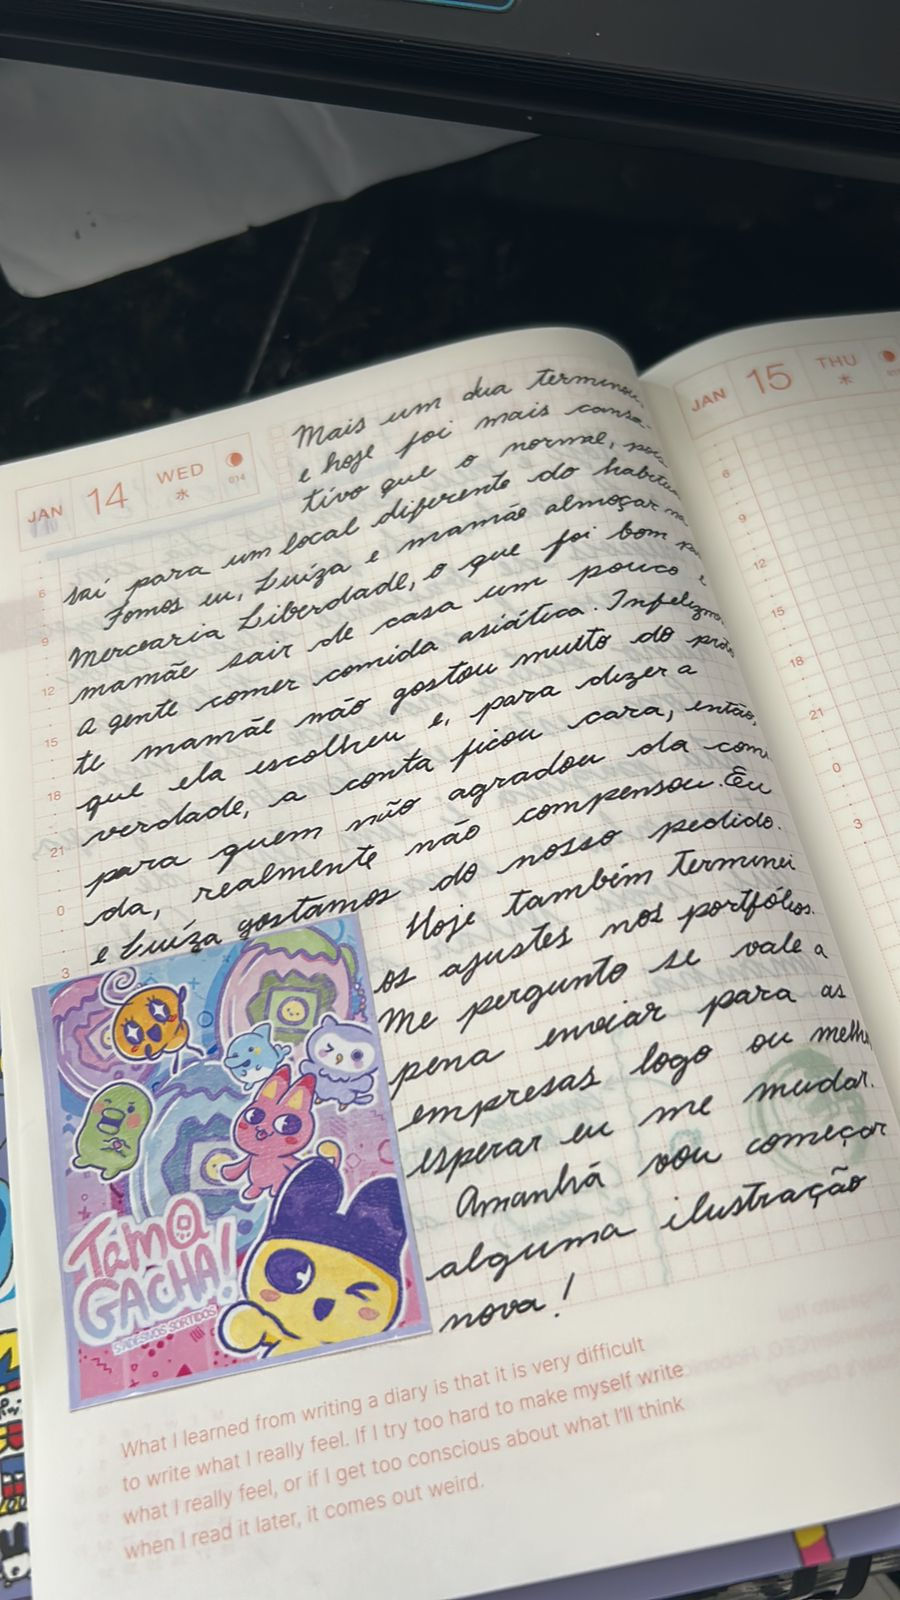 JAN 14 WED
水
014
Mais um dia terminou,
e hoje foi mais cansa-
tivo que o normal, pois
sai para um local diferente do
Fomos eu, Luíza e mamãe almoçar na
Mercearia Liberdade, o que foi bom
mamãe sair de casa um pouco e
a gente comer comida asiática.
te mamãe não gostou muito do
que ela escolheu e, para dizer a
verdade, a conta ficou cara, então,
para quem não agradou da comi
da, realmente não compensou. Eu
e Luíza gostamos do nosso pedido.
Hoje também terminei
os ajustes nos portfólios.
Me pergunto se vale a
pena enviar para as
empresas logo ou
esperar eu me mudar.
Amanhã vou começar
alguma ilustração
nova!
6
9
12
15
18
21
0
3
Tama
GACHA!
5 ADESIVOS SORTIDOS
What I learned from writing a diary is that it is very difficult
to write what I really feel. If I try too hard to make myself write
what I really feel, or if I get too conscious about what I'll think
when I read it later, it comes out weird.
JAN 15 THU
木
6
9
12
15
18
21
0
3